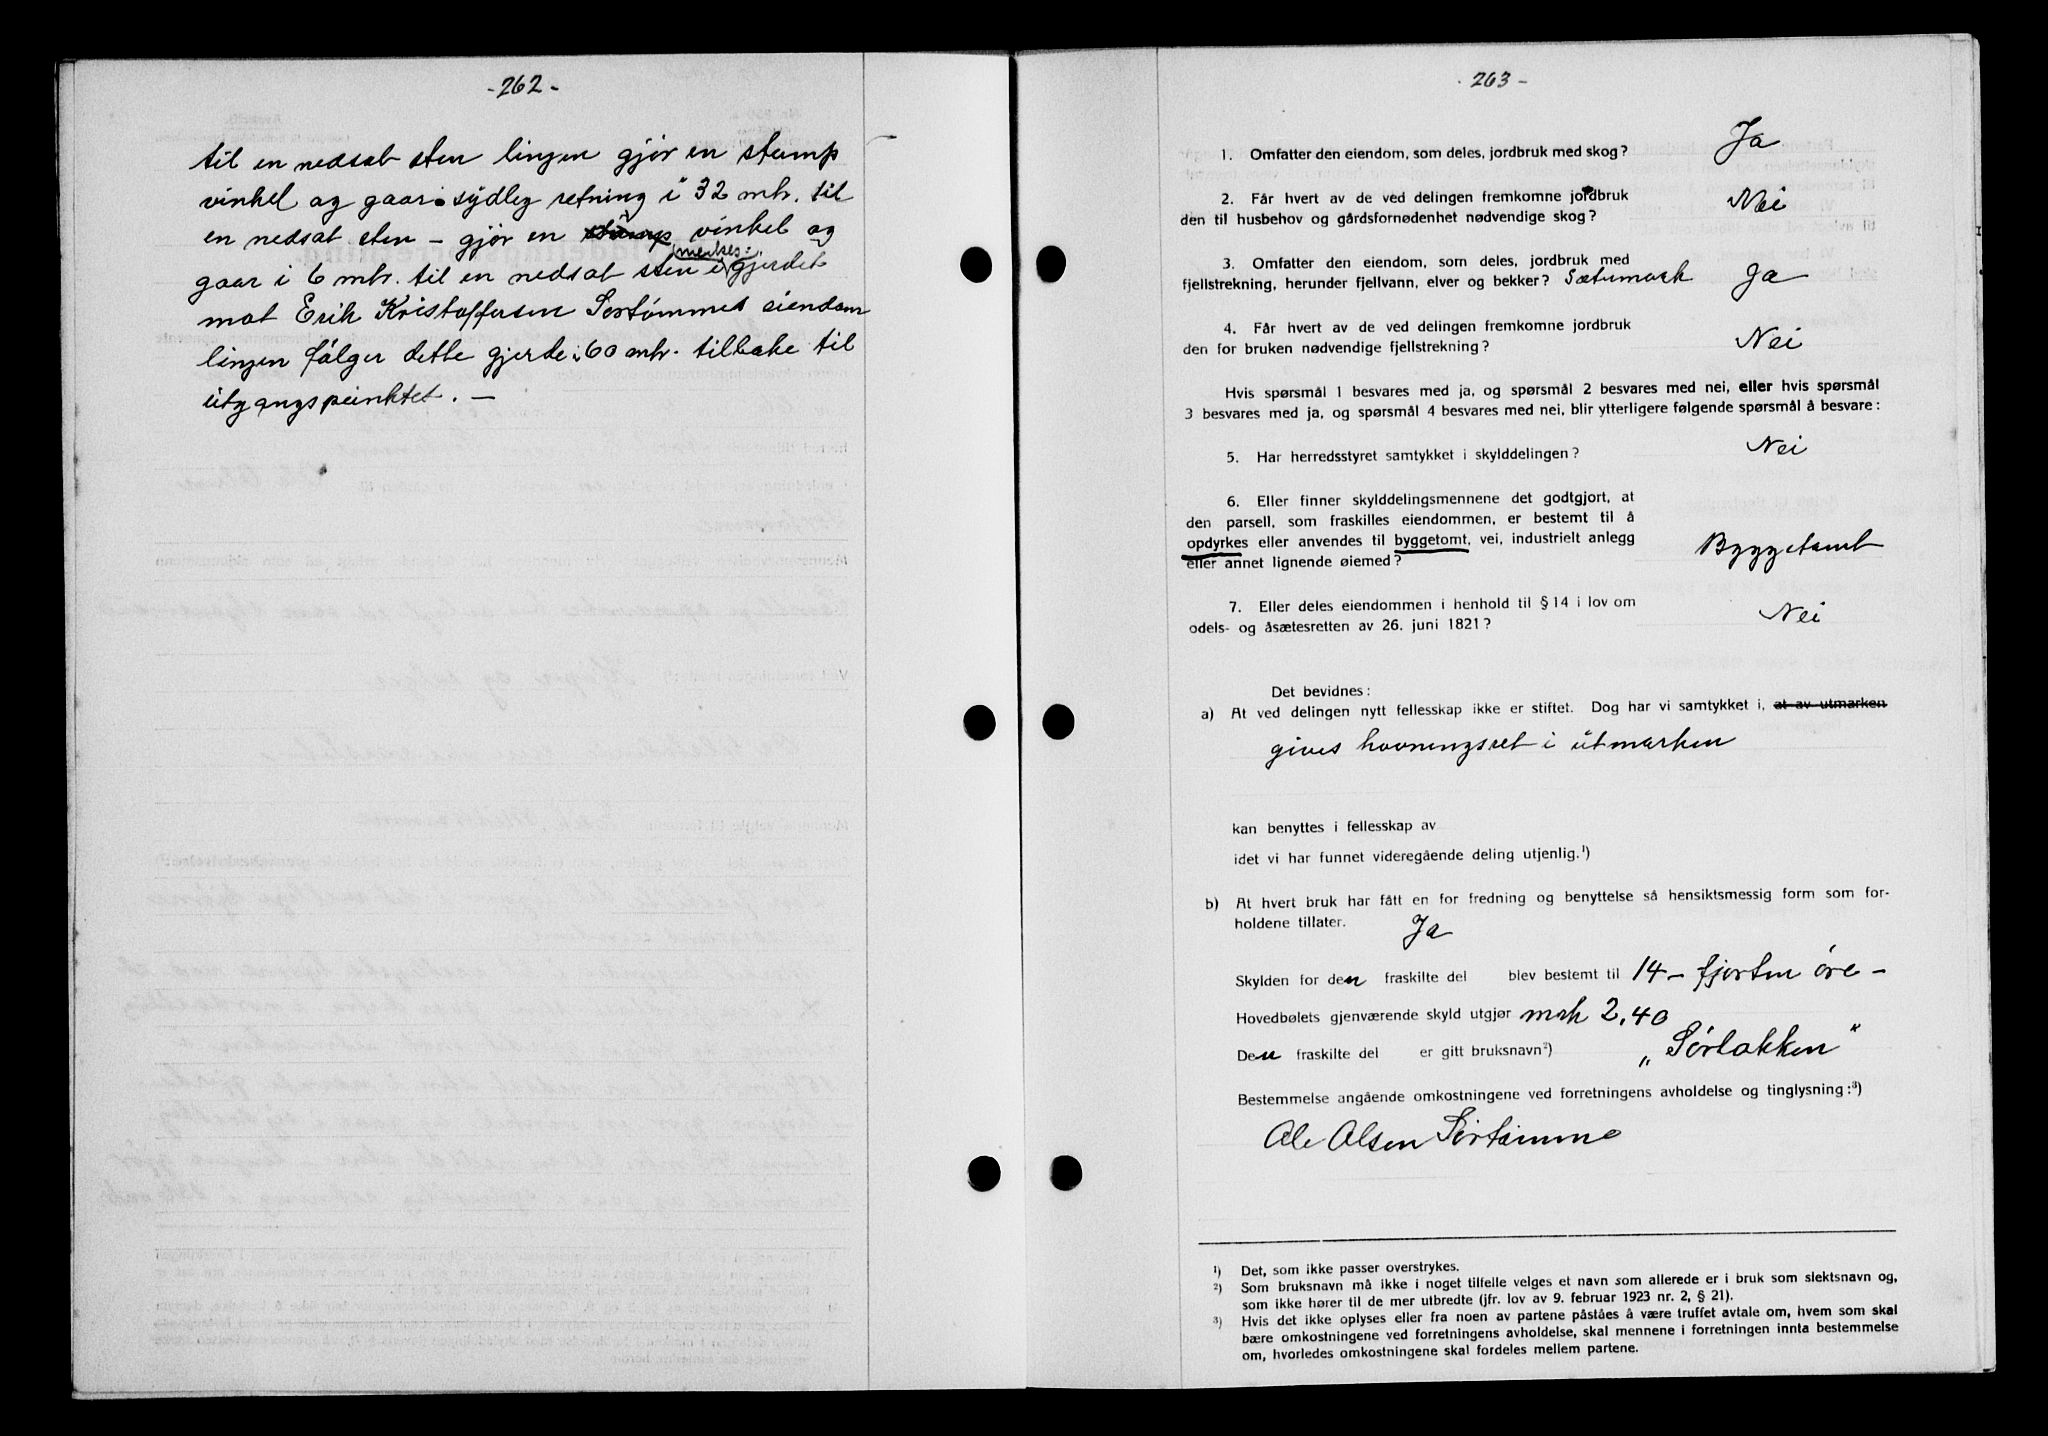 - 262 -
til en nedsat sten linjen gjør en stump
vinkel og gaar i sydleg retning i 32 mtr. til
en nedsat sten - gjør en stump vinkel og
merkes:
gaar i 6 mtr. til en nedsat sten i gjerdet
mot Erik Kristoffersen Sørtømmes eiendom
linjen følger dette gjerde i 60 mtr. tilbake til
utgangspunktet. -
- 263 -
1. Omfatter den eiendom, som deles, jordbruk med skog? Ja
2. Får hvert av de ved delingen fremkomne jordbruk
den til husbehov og gårdsfornødenhet nødvendige skog? Nei
3. Omfatter den eiendom, som deles, jordbruk med
fjellstrekning, herunder fjellvann, elver og bekker? Sætermark Ja
4. Får hvert av de ved delingen fremkomne jordbruk
den for bruken nødvendige fjellstrekning? Nei
Hvis spørsmål 1 besvares med ja, og spørsmål 2 besvares med nei, eller hvis spørsmål
3 besvares med ja, og spørsmål 4 besvares med nei, blir ytterligere følgende spørsmål å besvare:
5. Har herredsstyret samtykket i skylddelingen? Nei
6. Eller finner skylddelingsmennene det godtgjort, at
den parsell, som fraskilles eiendommen, er bestemt til å
opdyrkes eller anvendes til byggetomt, vei, industrielt anlegg
eller annet lignende øiemed? Byggetomt
7. Eller deles eiendommen i henhold til § 14 i lov om
odels- og åsætesretten av 26. juni 1821? Nei
Det bevidnes:
a) At ved delingen nytt fellesskap ikke er stiftet. Dog har vi samtykket i, at av utmarken
gives havningsret i utmarken
kan benyttes i fellesskap av
idet vi har funnet videregående deling utjenlig.¹)
b) At hvert bruk har fått en for fredning og benyttelse så hensiktsmessig form som for-
holdene tillater. Ja
Skylden for den fraskilte del blev bestemt til 14 - fjorten øre -
Hovedbølets gjenværende skyld utgjør mrk 2,40
Den fraskilte del er gitt bruksnavn²) „Sørløkken"
Bestemmelse angående omkostningene ved forretningens avholdelse og tinglysning:³)
Ole Olsen Sørtømme
¹) Det, som ikke passer overstrykes.
²) Som bruksnavn må ikke i noget tilfelle velges et navn som allerede er i bruk som slektsnavn og,
som ikke hører til de mer utbredte (jfr. lov av 9. februar 1923 nr. 2, § 21).
³) Hvis det ikke oplyses eller fra noen av partene påståes å være truffet avtale om, hvem som skal
bære omkostningene ved forretningens avholdelse, skal mennene i forretningen innta bestemmelse
om, hvorledes omkostningene skal fordeles mellem partene.